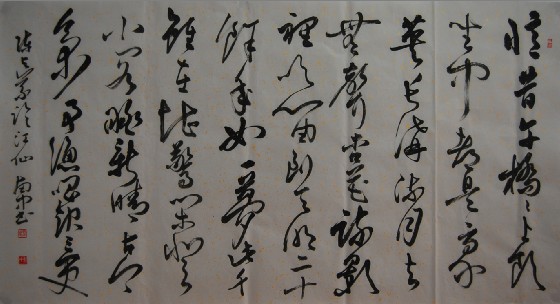 憶昔午橋々上飲
坐中都是豪
英長溝流月去
無聲杏花疏影
裡吹笛到天明二十
餘年如一夢此身
雖在堪驚閑登
小閣眺新晴古今
多少事漁唱起三更
陳与義臨江仙